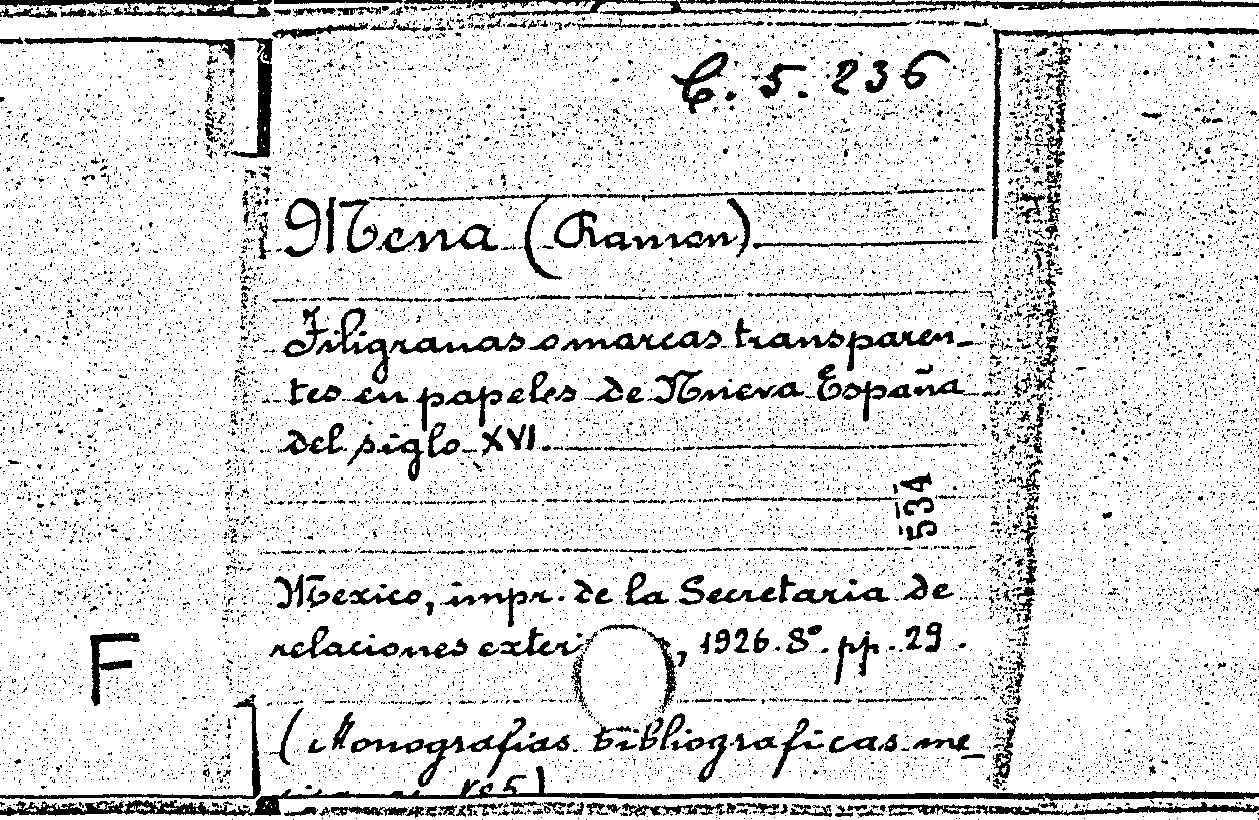 C. 5. 236
Mena (Ramon).
Filigranas o marcas transparen-
tes en papeles de Nueva España
del siglo XVI.
534
Mexico, impr. de la Secretaria de
relaciones exteri , 1926. 8°. pp. 29.
F
(Monografias bibliograficas me-